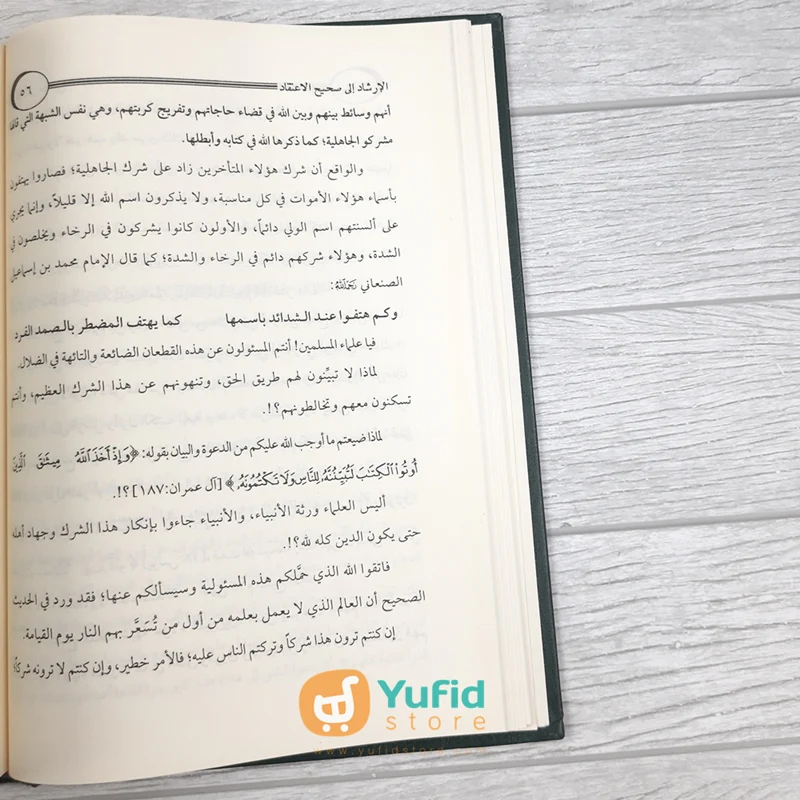 الإرشاد إلى صحيح الاعتقاد
٥٦
أنهم وسائط بينهم وبين الله في قضاء حاجاتهم وتفريج كربتهم، وهي نفس الشبهة التي قالها
مشركو الجاهلية؛ كما ذكرها الله في كتابه وأبطلها.
والواقع أن شرك هؤلاء المتأخرين زاد على شرك الجاهلية؛ فصاروا يهتفون
بأسماء هؤلاء الأموات في كل مناسبة، ولا يذكرون اسم الله إلا قليلاً، وإنما يجري
على ألسنتهم اسم الولي دائماً، والأولون كانوا يشركون في الرخاء ويخلصون في
الشدة، وهؤلاء شركهم دائم في الرخاء والشدة؛ كما قال الإمام محمد بن إسماعيل
الصنعاني رحمه الله:
وكم هتفوا عند الشدائد باسمها كما يهتف المضطر بالصمد الفرد
فيا علماء المسلمين! أنتم المسئولون عن هذه القطعان الضائعة والتائهة في الضلال.
لماذا لا تبيِّنون لهم طريق الحق، وتنهونهم عن هذا الشرك العظيم، وأنتم
تسكنون معهم وتخالطونهم؟!.
لماذا ضيعتم ما أوجب الله عليكم من الدعوة والبيان بقوله: ﴿وَإِذْ أَخَذَ ٱللَّهُ مِيثَٰقَ ٱلَّذِينَ
أُوتُوا۟ ٱلْكِتَٰبَ لَتُبَيِّنُنَّهُۥ لِلنَّاسِ وَلَا تَكْتُمُونَهُۥ﴾ [آل عمران: ١٨٧]؟!.
أليس العلماء ورثة الأنبياء، والأنبياء جاءوا بإنكار هذا الشرك وجهاد أهله
حتى يكون الدين كله لله؟!.
فاتقوا الله الذي حمَّلكم هذه المسئولية وسيسألكم عنها؛ فقد ورد في الحديث
الصحيح أن العالم الذي لا يعمل بعلمه من أول من تُسَعَّر بهم النار يوم القيامة.
إن كنتم ترون هذا شركاً وتركتم الناس عليه؛ فالأمر خطير، وإن كنتم لا ترونه شركاً؛
Yufid
store
www.yufidstore.com